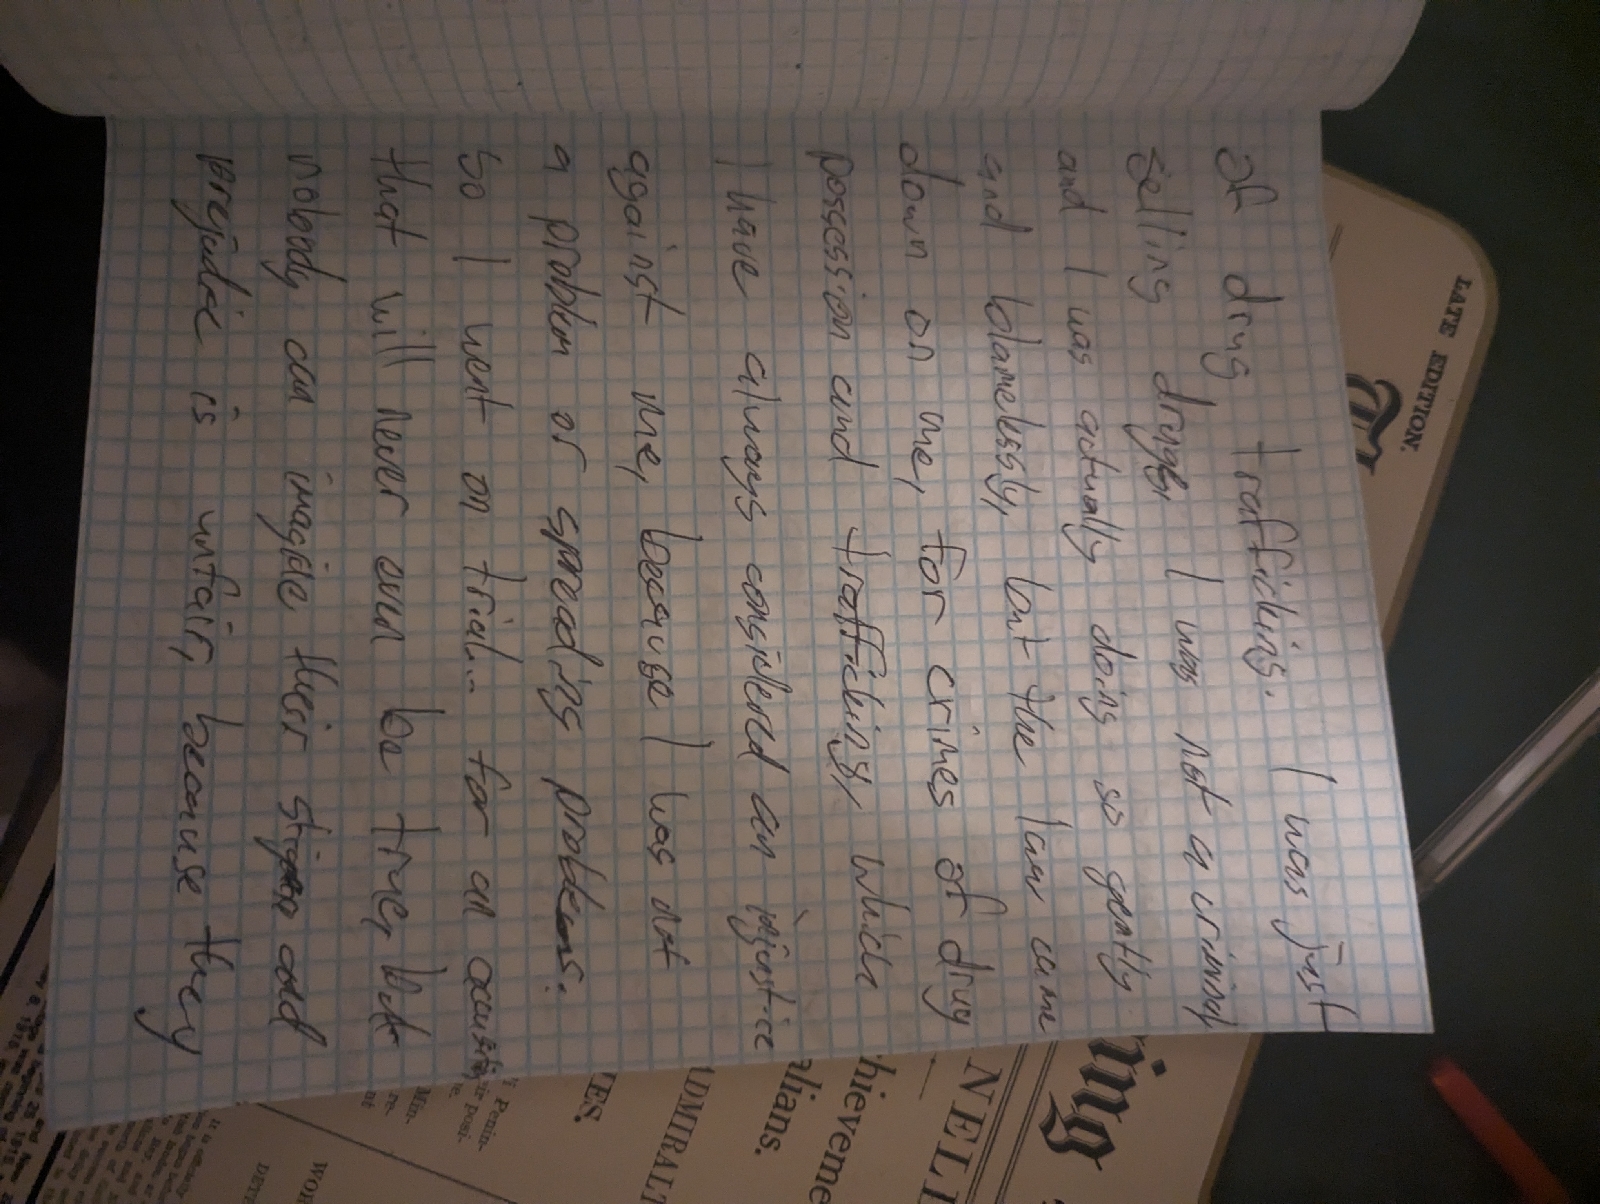 of drug trafficking. I was just
selling drugs, I was not a criminal
and I was actually doing so gently
and blamelessly, but the law came
down on me, for crimes of drug
possession and trafficking, which
I have always considered an injustice
against me, because I was not
a problem or spreading problems.
So I went on trial... for an
that will never even be true, but
nobody can imagine their and
prejudice is unfair, because they
LATE EDITION.
ring
NEL
hieveme
alians.
ADMIRALT
VES.
WOR
DET